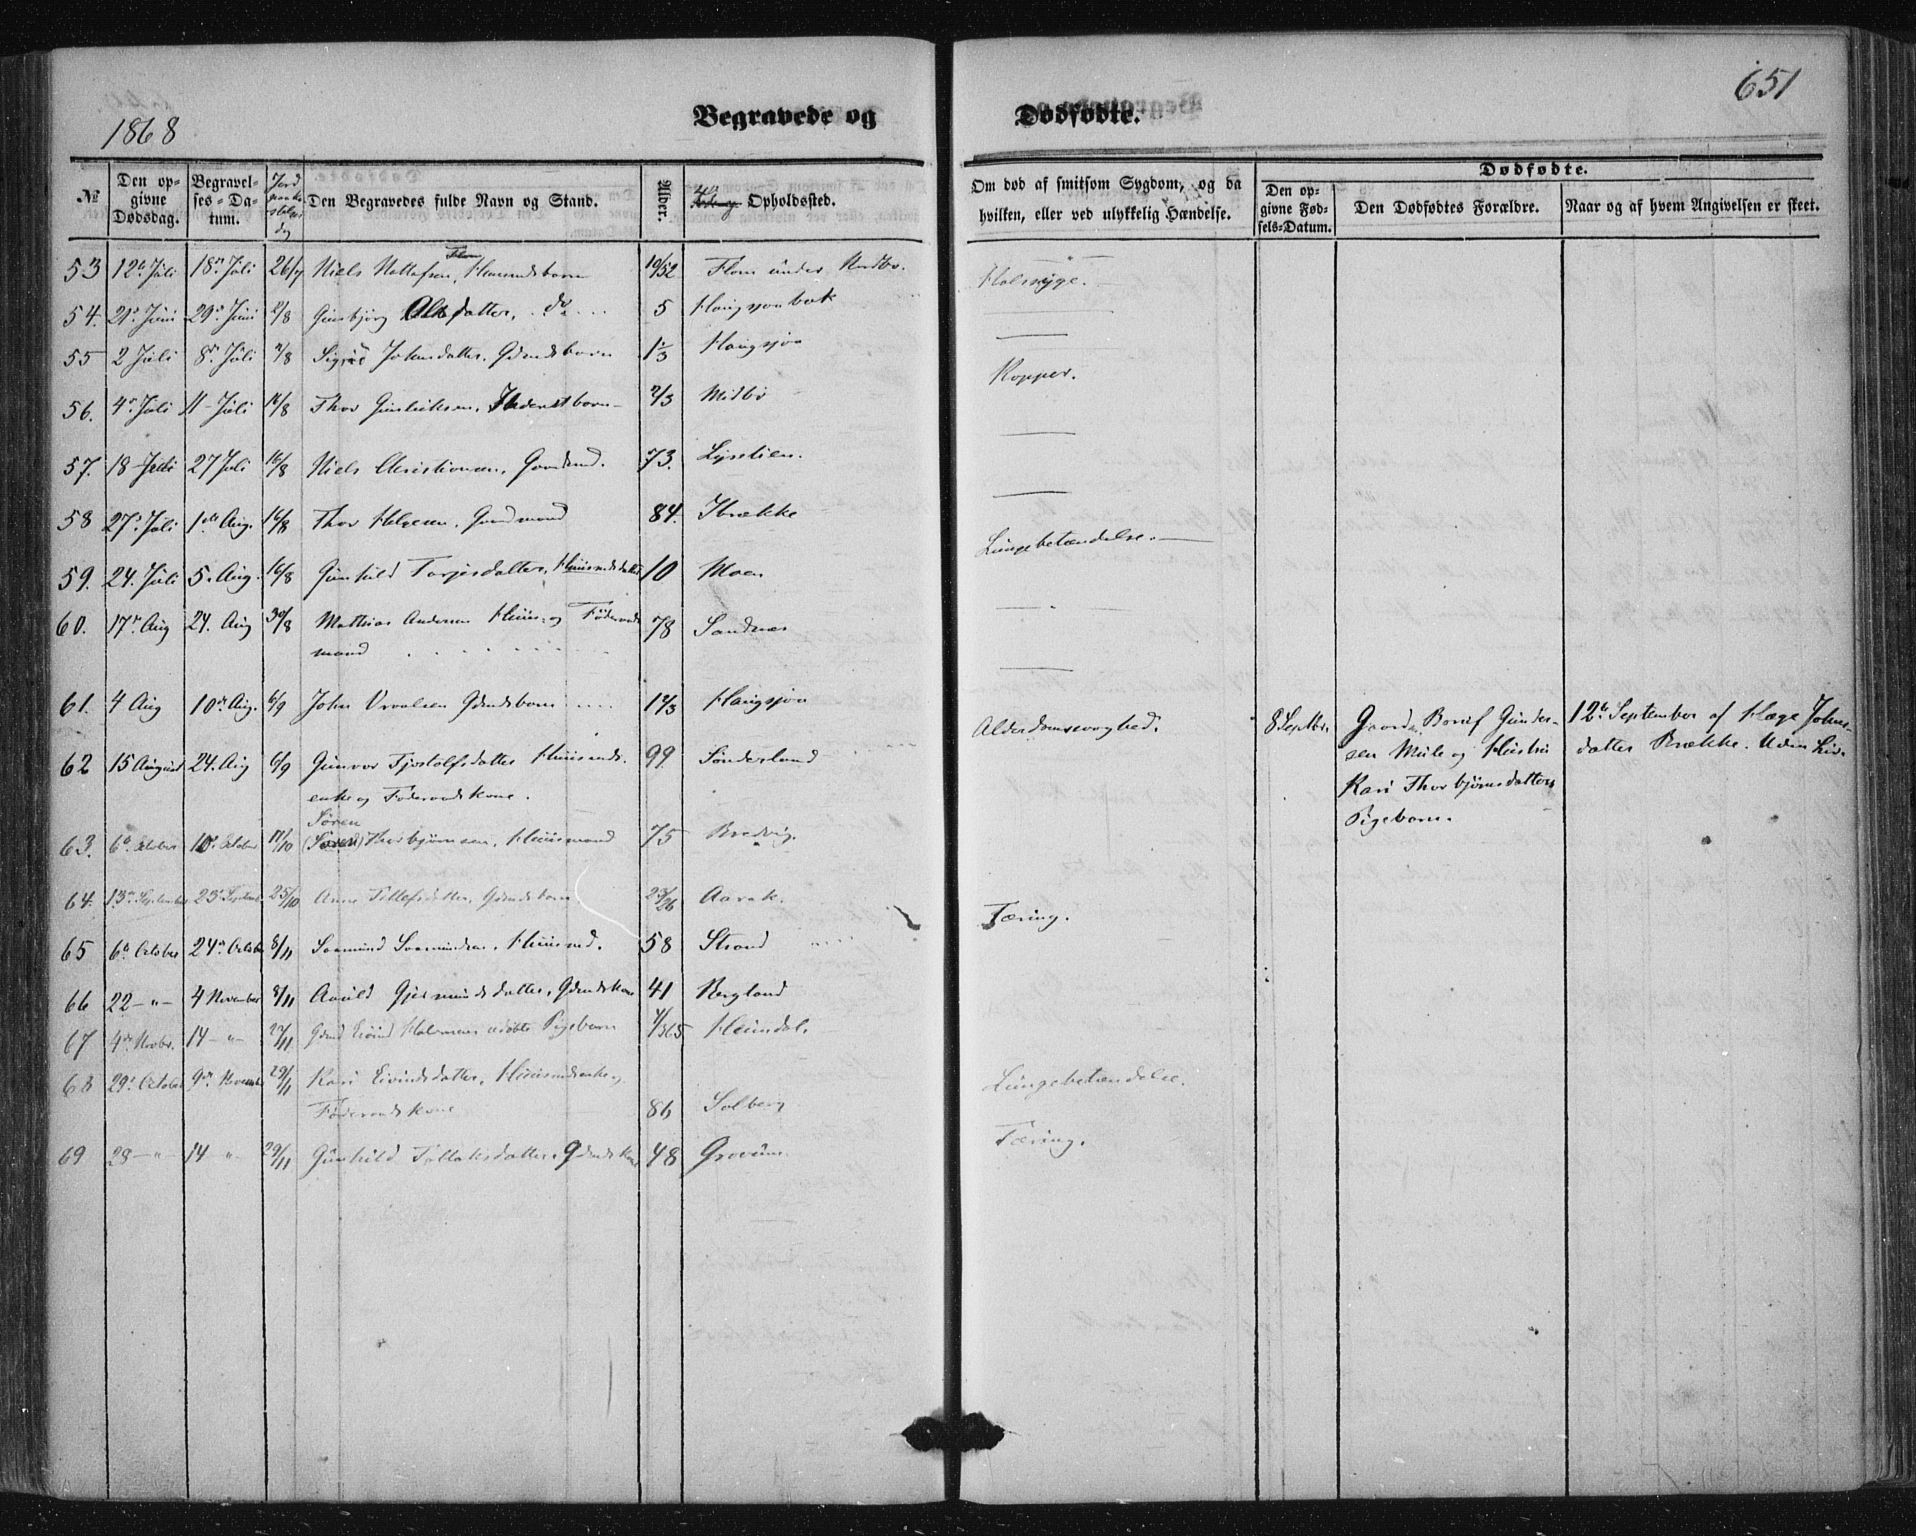 1868
Begravede og Dødfødte.
651
№ Den opgivne Dødsdag. Begravelses-Datum. Jord Den Begravedes fulde Navn og Stand. Alder. Opholdssted.
Om død af smitsom Sygdom, og da hvilken, eller ved ulykkelig Hændelse.
Dødfødte.
Den opgivne Fødsels-Datum. Den Dødfødtes Forældre. Naar og af hvem Angivelsen er skeet.
53 12te Juli 18de Juli 26/7 Niels 10/52 Flom under Nordbø. Halssyge.
54. 21de Juni 29de Juni 2/8 Gunbjørg Olsdatter, do 5 Haugsjaa
55 2 Juli 8de Juli 2/8 Johnsdatter, Gdmdsbarn 1 1/3 Haugsjaa Kopper.
56. 4de Juli 11 Juli 16/8 Thor Gunleiksen, 2/3 Midbø
57. 18 Juli 27 Juli 16/8 Niels Christiansen, Gaardmd. 73. Lyselien.
58 27de Juli 1ste Aug. 16/8 Thor Helgesen, Gaardmand 84. Brække Lungebetændelse.
59. 24. Juli 5. Aug. 16/8 Gunhild Torjusdatter, Huusmdsdatter 10 Moen
60. 17de Aug 24. Aug 30/8 Mathias Andersen Huus- og Føderaads
mand 78 Sandnæs
61. 4 Aug 10de Aug. 6/9 John Vraalsen Gdmdsbarn 1 2/3 Haugsjaa
62 15 August 24. Aug 6/9 Gunvor Tjostolfsdatter Huusmds.
enke og Føderaadskone. 99 Sønderland Alderdomssvaghed.
8 Septbr. Gaardm. Gunder-
sen Mule og Hustru
Kari Thorbjørnsdatters
Pigebarn.
12te September af Hæge Johns-
datter Brække. Uden Liv.
Søren
63. 6te October 10de October 11/10 (Søren) Thorbjørnsen, Huusmand 75 Bredvig.
64. 13de September 23de Septemb. 25/10 Anne Tellefsdatter, Gdmdsbarn 23/26 Aarak.
65 6te October 24de Octob 8/11 Saamund Saamundsen, Huusmd. 58 Strand Tæring.
66 22 -"- 4 November 8/11 Aasild Gjermundsdatter, Gdmdskone 41 Bergland
67 4de Novbr. 14 -"- 29/11 Gdmd Eivind Halvorsens udøbte Pigebarn 1/365 Heimdal.
68 29de October 9de November 29/11 Kari Eivindsdatter, Huusmdsenke og
Føderaadskone 86 Solberg Lungebetændelse.
69 28 -"- 14 " 29/11 Gunhild Folkaksdatter, Gdmdskone 48 Grovum Tæring.